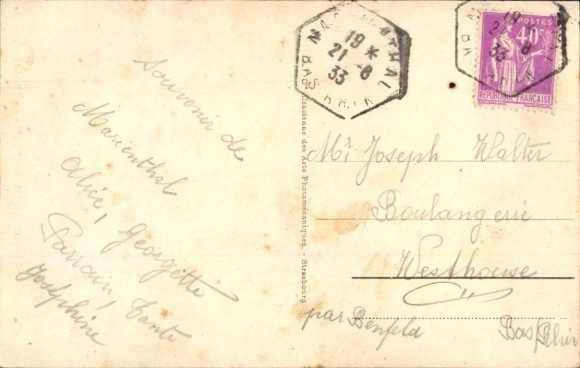 Souvenir de
Marienthal
Alice, Georgette
Parrain, Tante
Joséphine
MARIENTHAL
19 *
21-8
33
BAS RHIN
19
21-8
33
POSTES
40c
REPUBLIQUE FRANÇAISE
des Arts Photomécaniques, - Strasbourg
Mr Joseph Walter
Boulangerie
Westhouse
par Benfeld Bas/Rhin